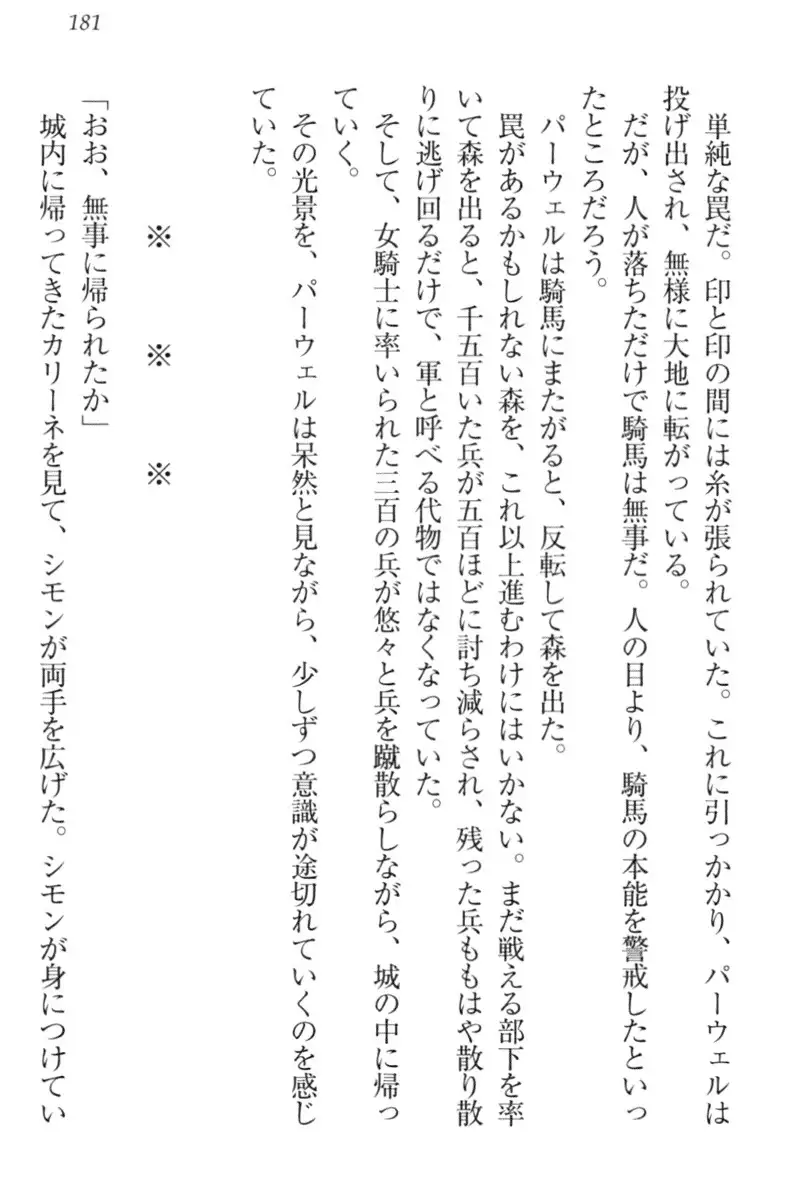 181
単純な罠だ。印と印の間には糸が張られていた。これに引っかかり、パーウェルは
投げ出され、無様に大地に転がっている。
だが、人が落ちただけで騎馬は無事だ。人の目より、騎馬の本能を警戒したといっ
たところだろう。
パーウェルは騎馬にまたがると、反転して森を出た。
罠があるかもしれない森を、これ以上進むわけにはいかない。まだ戦える部下を率
いて森を出ると、千五百いた兵が五百ほどに討ち減らされ、残った兵ももはや散り散
りに逃げ回るだけで、軍と呼べる代物ではなくなっていた。
そして、女騎士に率いられた三百の兵が悠々と兵を蹴散らしながら、城の中に帰っ
ていく。
その光景を、パーウェルは呆然と見ながら、少しずつ意識が途切れていくのを感じ
ていた。
※　※　※
「おお、無事に帰られたか」
城内に帰ってきたカリーネを見て、シモンが両手を広げた。シモンが身につけてい